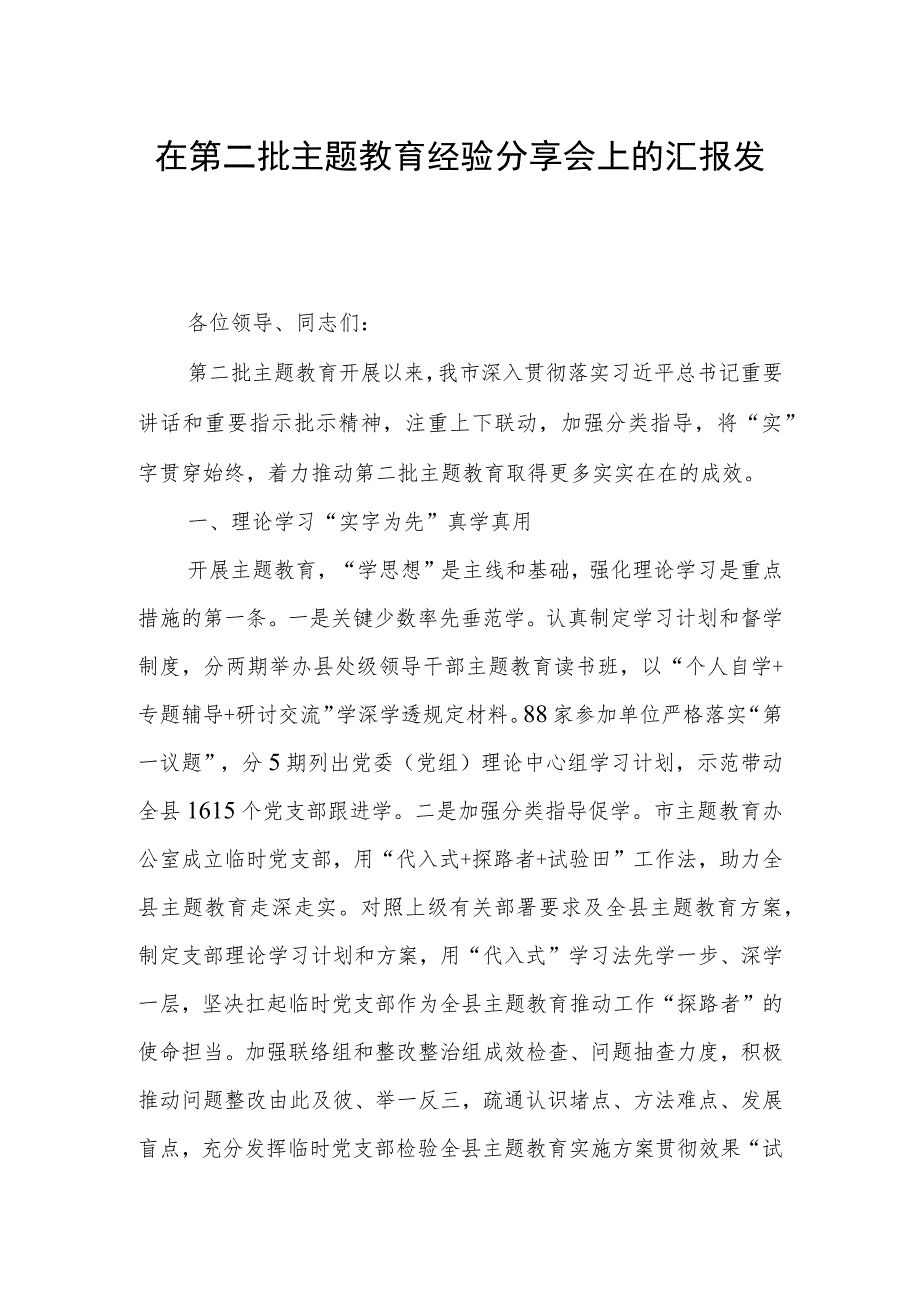 在第二批主题教育经验分享会上的汇报发
各位领导、同志们：
第二批主题教育开展以来，我市深入贯彻落实习近平总书记重要
讲话和重要指示批示精神，注重上下联动，加强分类指导，将“实”
字贯穿始终，着力推动第二批主题教育取得更多实实在在的成效。
一、理论学习“实字为先”真学真用
开展主题教育，“学思想”是主线和基础，强化理论学习是重点
措施的第一条。一是关键少数率先垂范学。认真制定学习计划和督学
制度，分两期举办县处级领导干部主题教育读书班，以“个人自学+
专题辅导+研讨交流”学深学透规定材料。88家参加单位严格落实“第
一议题”，分5期列出党委（党组）理论中心组学习计划，示范带动
全县1615个党支部跟进学。二是加强分类指导促学。市主题教育办
公室成立临时党支部，用“代入式+探路者+试验田”工作法，助力全
县主题教育走深走实。对照上级有关部署要求及全县主题教育方案，
制定支部理论学习计划和方案，用“代入式”学习法先学一步、深学
一层，坚决扛起临时党支部作为全县主题教育推动工作“探路者”的
使命担当。加强联络组和整改整治组成效检查、问题抽查力度，积极
推动问题整改由此及彼、举一反三，疏通认识堵点、方法难点、发展
盲点，充分发挥临时党支部检验全县主题教育实施方案贯彻效果“试